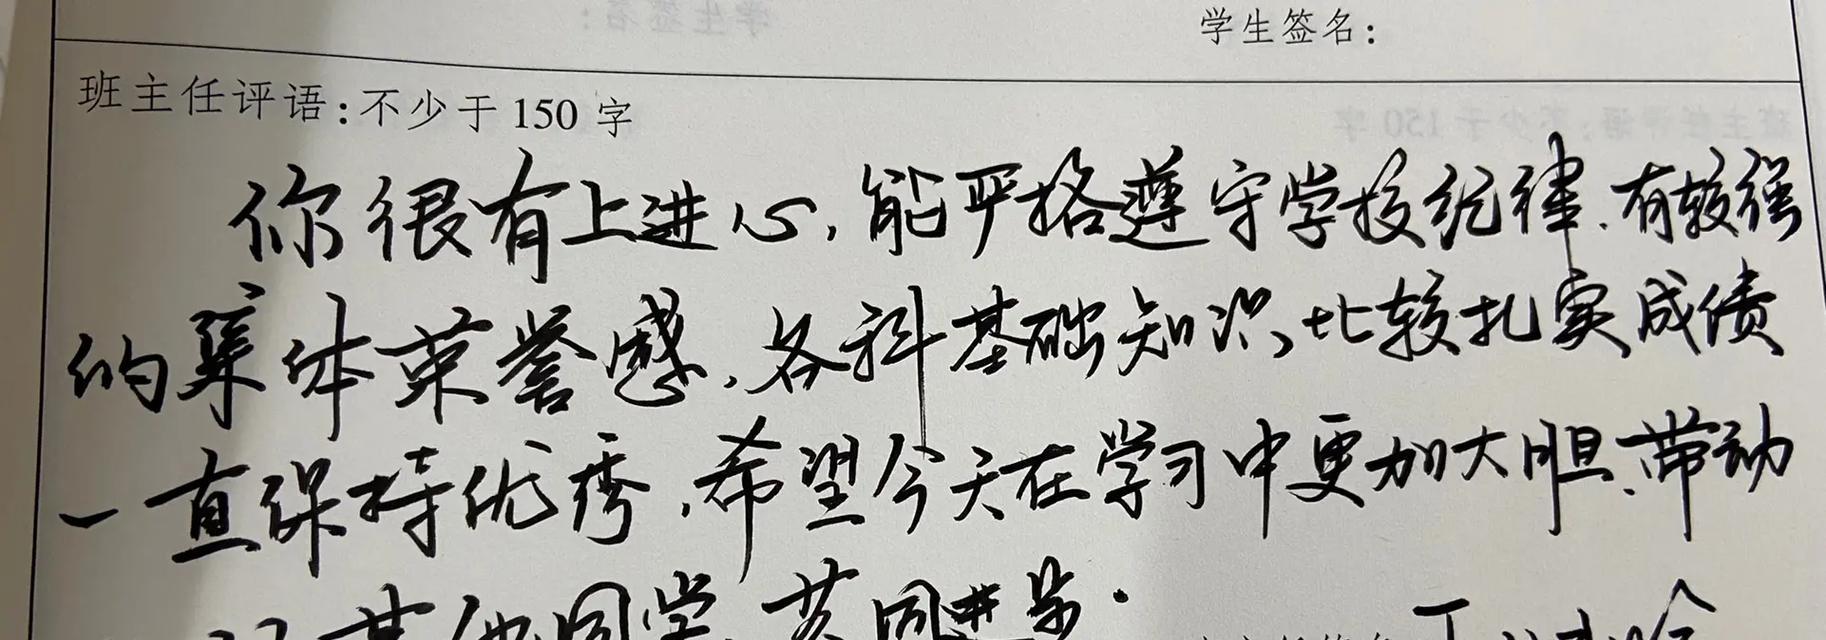 学生签名：
班主任评语：不少于 150 字
你很有上进心，能严格遵守学校纪律，有较强
的集体荣誉感，各科基础知识比较扎实成绩
一直保持优秀，希望今天在学习中更加大胆、带动
其他同学，共同进步．